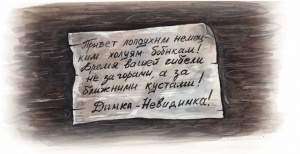 Привет лопоухим немец-
ким холуям бобикам!
Время вашей гибели
не за горами, а за
ближними кустами!
Димка-Невидимка!